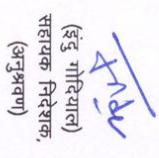 (इंदु गोदियाल)
सहायक निदेशक,
(अनुश्रवण)